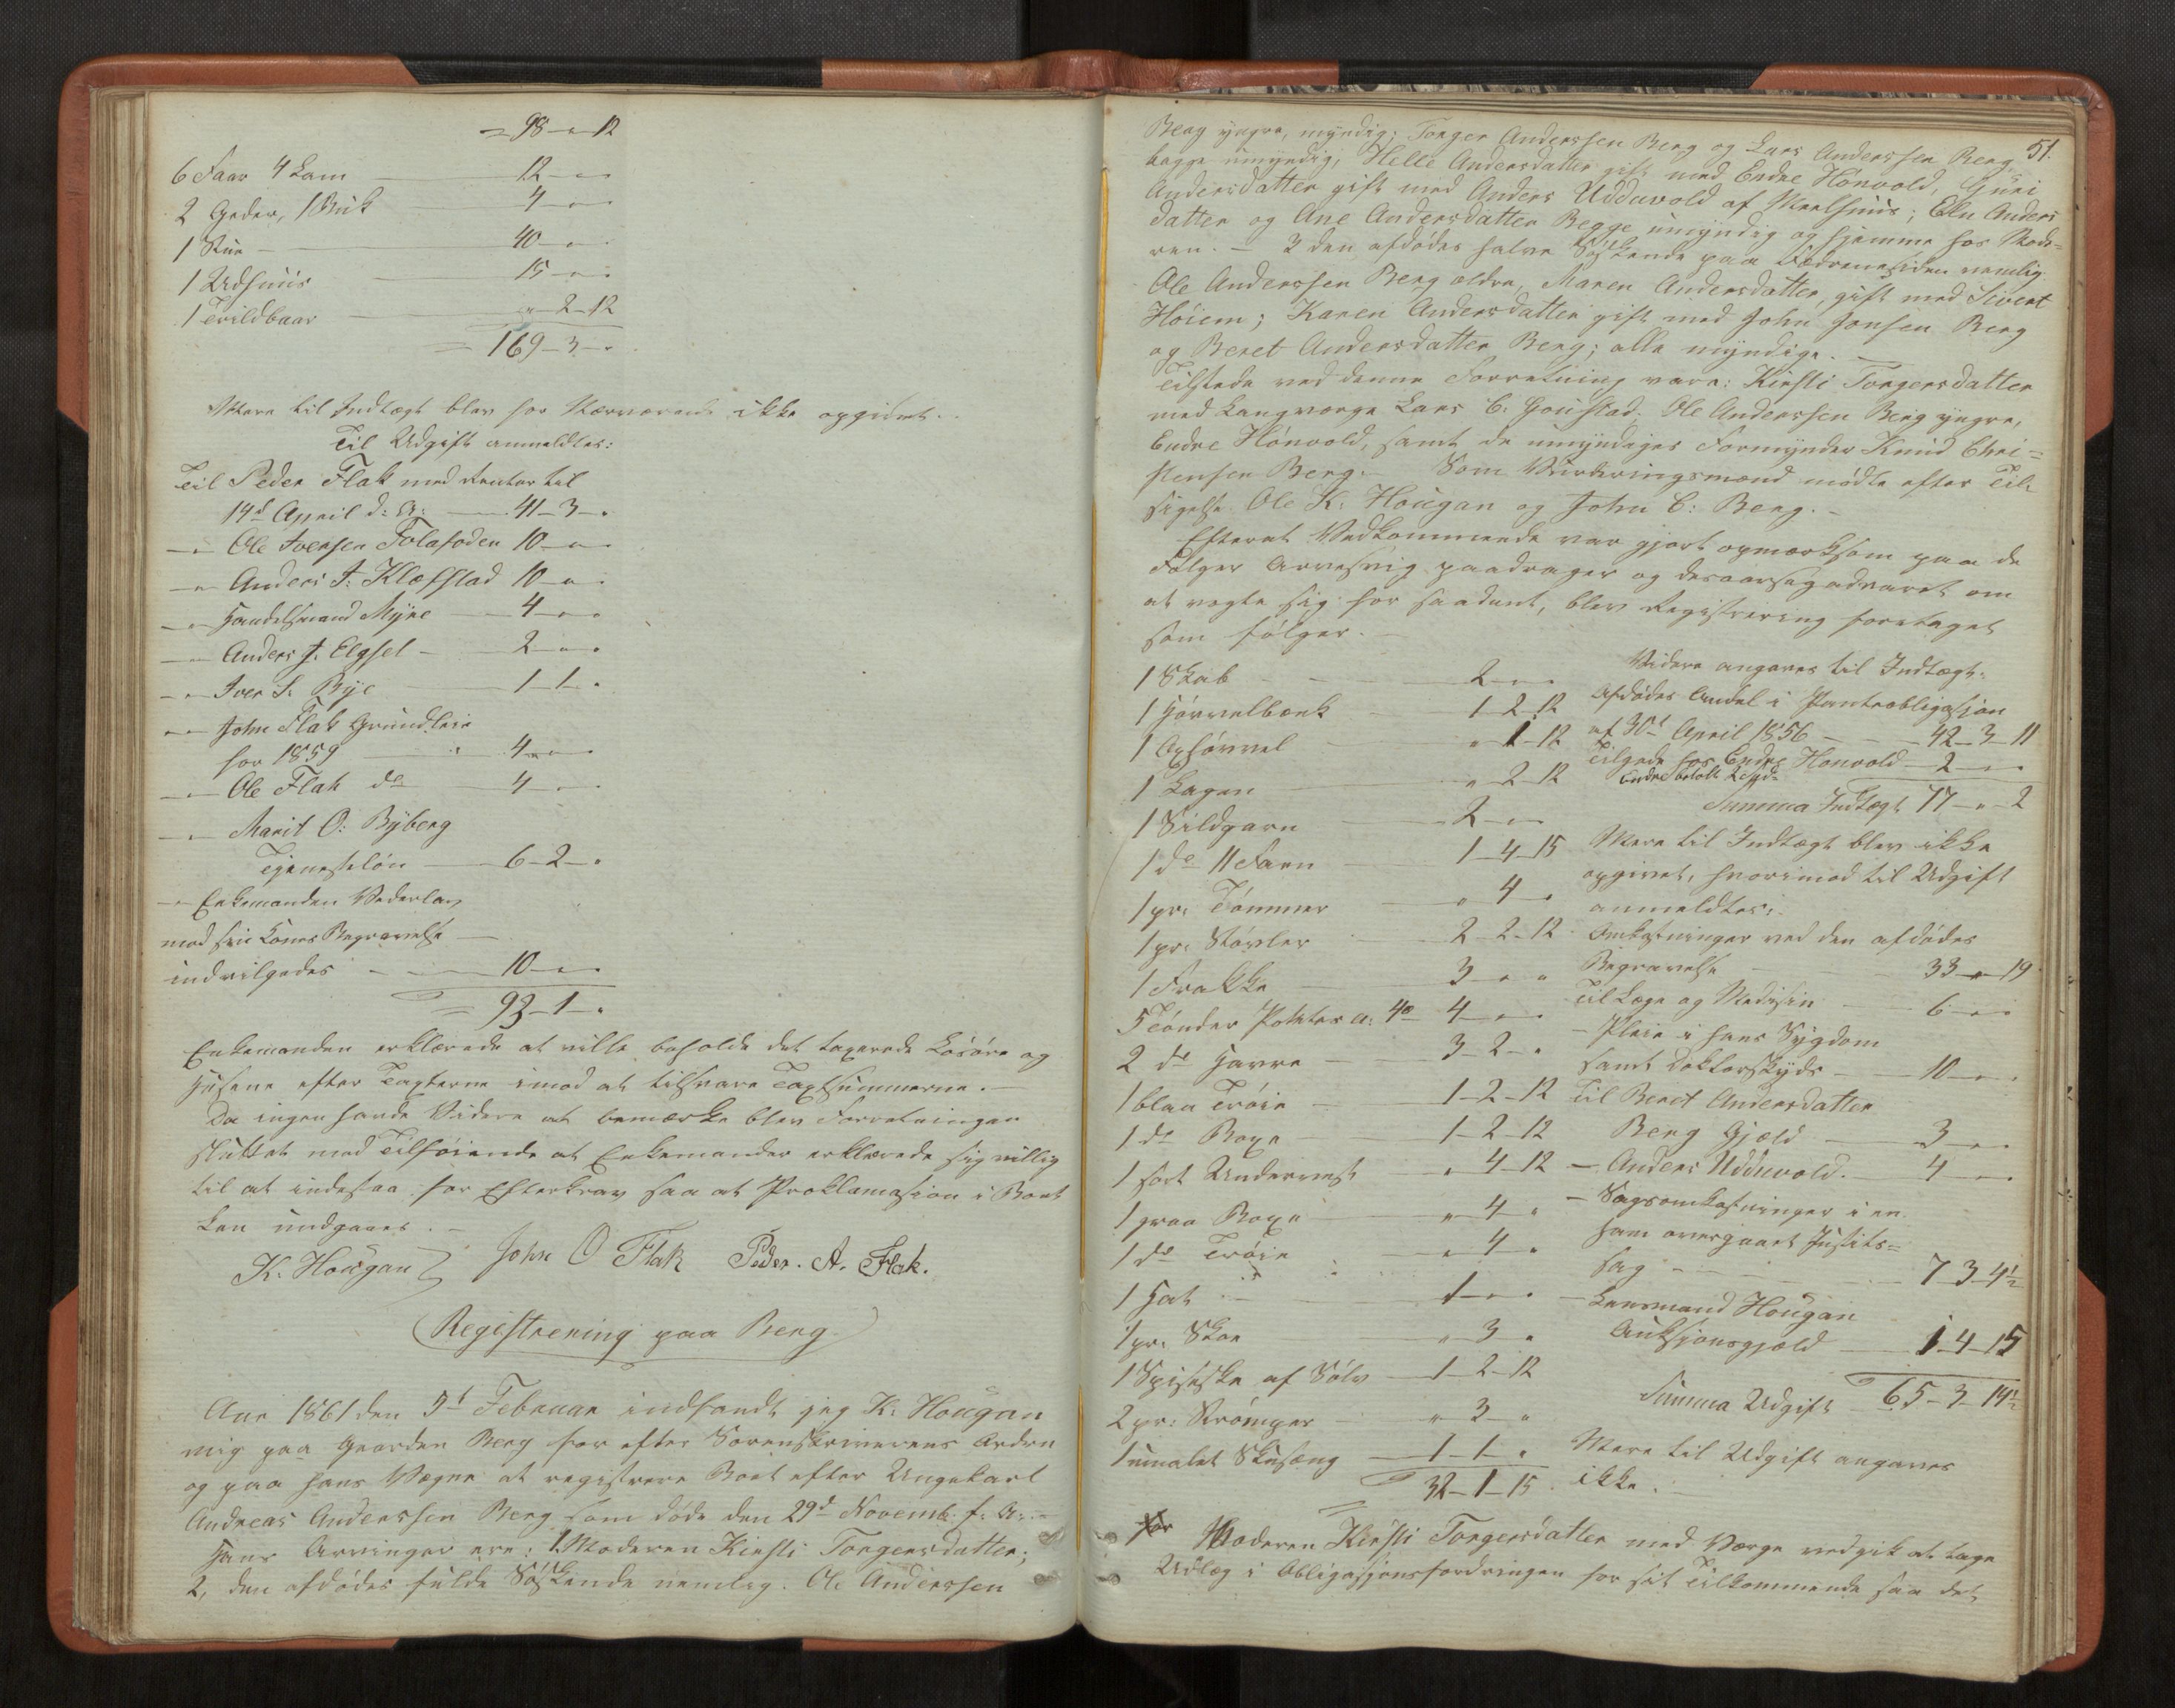 = 98 - " - 12
6 Faar 4 Lam — 12 - " - "
2 Geder, 1 Buk — 4 - " - "
1 Stue — 40 - " - "
1 Udhuus — 15 - " - "
1 Trildbaar — " - 2 - 12
= 169 - 3 - "
Mere til Indtægt blev for Nærværende ikke opgivet.
Til Udgift anmeldtes:
Til Peder Flak med Renter til
14d April d: A: — 41 - 3 - "
— " — Ole Iversen Tolaforden 10 - " - "
— " — Anders J. Klefstad 10 - " - "
— " — Handelsmand Myre — 4 - " - "
— " — Anders J. Elgsel — 2 - " - "
— " — Iver S. Bye — 1 - 1 - "
— " — John Flak Grundleie
for 1859 — 4 - " - "
— " — Ole Flak do — 4 - " - "
— " — Marit O: Byberg
Tjenesteløn — 6 - 2 - "
— " — Enkemanden Vederlag
mod sin Kones Begravelse —
indvilgedes — 10 - " - "
= 93 - 1 - "
Enkemanden erklærede at ville beholde det taxerede Løsøre og
Husene efter Taxterne imod at tilsvare Taxtsummerne. —
Da ingen havde Videre at bemærke blev Forretningen
sluttet med Tilføiende at Enkemanden erklærede sig villig
til at indestaa for Efterkrav saa at Proklamasion i Boet
kan undgaaes. —
K. Hougan John O Flak Peder. A. Flak.
Registrering paa Berg
Aar 1861 den 5t Februar indfandt jeg K: Hougan
mig paa Gaarden Berg for efter Sorenskriverens Ordre
og paa hans Vegne at registrere Boet efter Ungekarl
Andreas Anderssen Berg som døde den 29d Novemb. f: A: —
Hans Arvinger ere: 1. Moderen Kirsti Torgersdatter;
2, den afdødes fulde Søskende nemlig: Ole Anderssen
51.
Berg yngre, myndig; Torger Anderssen Berg og Lars Anderssen Berg
begge umyndig; Helle Andersdatter gift med Endre Hónvold, Guri
Andersdatter gift med Anders Udduvold af Meelhuus; Elen Anders
datter og Ane Andersdatter Begge umyndig og hjemme hos Mode=
ren. — 3 den afdødes halve Søskende paa Fædrenesiden nemlig
Ole Anderssen Berg ældre, Maren Andersdatter, gift med Sivert
Hóiem; Karen Andersdatter gift med John Jonsen Berg
og Beret Andersdatter Berg; alle myndige. —
Tilstede ved denne Forretning vare: Kirsti Torgersdatter
med Laugværge Lars C. Goustad. Ole Anderssen Berg yngre,
Endre Hónvold, samt de umyndiges Formynder Knud Chri=
stensen Berg. — Som Vurderingsmænd mødte efter Til=
sigelse Ole K. Hougan og John C: Berg. —
Efterat Vedkommende var gjort opmærksom paa de
Følger Arvesvig paadrager og advaret om
at vogte sig for saadant, blev Registrering foretaget
som følger. —
1 Skab — 2 - " - "
1 Høvvelbænk — 1 - 2 - 12
1 — " - 1 - 12
1 Lagen — " - 2 - 12
1 Sildgarn — 2 - " - "
1 do 11 Favn — 1 - 4 - 15
1 pr. Tømmer — " - 4 - "
1 pr. Støvler — 2 - 2 - 12
1 Frakke — 3 - " - "
5 Tønder Potetes a. 4 — 4 - " - "
2 do Havre — 3 - 2 - "
1 blaa Trøie — 1 - 2 - 12
1 do Boxe — 1 - 2 - 12
1 sort Undervest — " - 4 - 12
1 graa Boxe — " - 4 - "
1 do Trøie — " - 4 - "
1 Hat — 1 - " - "
1 pr. Skoe — " - 3 - "
1 Spiseske af Sølv — 1 - 2 - 12
2 pr: Strømper — " - 3 - "
1 umalet Skusæng — 1 - 1 - "
32 - 1 - 15
Videre angaves til Indtægt:
Afdødes Andel i Panteobligasjon
af 30d April 1856 — 42 - 3 - 11
Tilgode hos Endre Honvold — 2 - " - "
Endre betalt 2 Spd
Summa Indtægt 77 - " - 2
Mere til Indtægt blev ikke
opgivet, hvorimod til Udgift
anmeldtes:
Omkostninger ved den afdødes
Begravelse — 33 - " - 19
Til Læge og Medisin — 6 - " - "
— Pleie i hans Sygdom
samt Doktorskyds — 10 - " - "
Til Beret Andersdatter
Berg Gjæld — 3 - " - "
— Anders Udduvold. — 4 - " - "
— Sagsomkostninger i en
ham overgaaet Justits=
sag — 7 - 3 - 4½
— Lensmand Hougan
Auksjonsgjæld — 1 - 4 - 15
Summa Udgift 65 - 3 - 14½
Mere til Udgift angaves
ikke. —
Moderen Kirsti Torgersdatter med Værge vedgik at tage
Udlæg i Obligasjonsfordringen for sit Tilkommende saa det